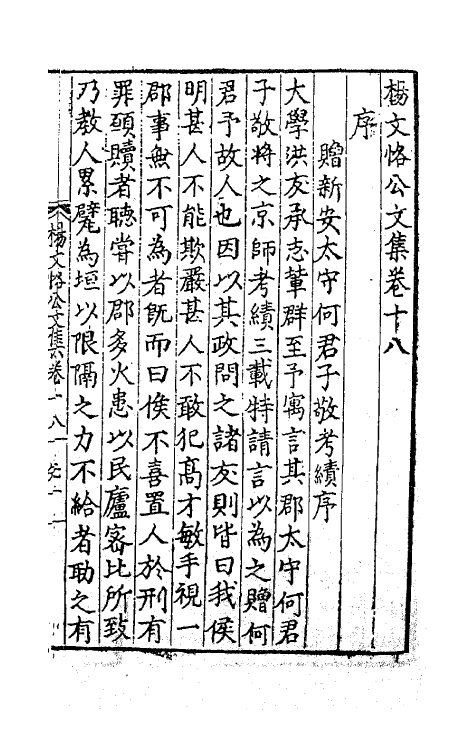 楊文恪公文集卷十八
序
贈新安太守何君子敬考績序
大學洪友承志輩群至予寓言其郡太守何君
子敬將之京師考績三載特請言以為之贈何
君予故人也因以其政問之諸友則皆曰我侯
明甚人不能欺嚴甚人不敢犯髙才敏手視一
郡事無不可為者旣而曰侯不喜置人於刑有
罪頋贖者聽嘗以郡多火患以民廬宻比所致
乃教人累甓為垣以限隔之力不給者助之有
楊文恪公文集卷十八